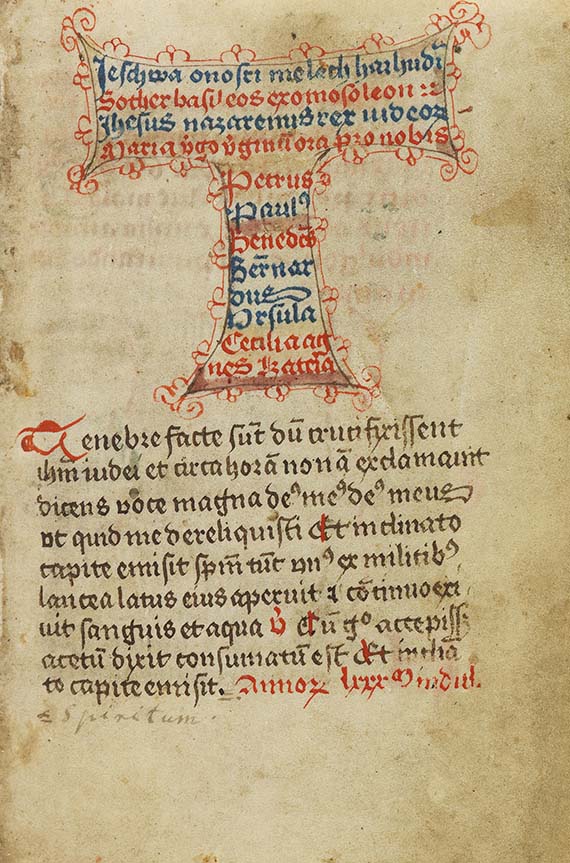 Jeschwa onosri melech haihudī
Sother basileos exomosoleon
Jhesus nazarenus rex iudeoꝝ
Maria v̄go v̄ginū ora pro nobis
Petrus
Paulꝰ
Benedcꝰ
Bern̄ar
dus
Vrsula
Cecilia ag
nes Kateīa
Tenebre facte sūt dū crucifixissent
ihm̄ iudei et circa horā nonā exclamauit
dicens voce magna deꝰ meꝰ deꝰ meus
vt quid me dereliquisti Et inclinato
capite emisit spm̄ tūt vnꝰ ex militibꝰ
lancea latus eius aperuit ⁊ cōtinuo exi
uit sanguis et aqua V̄ Cū gᵒ accepiss
acetū dixit consumatū est Et inclīa
to capite emisit. Annoꝝ lxxxᵐ indul.
Spiritum.